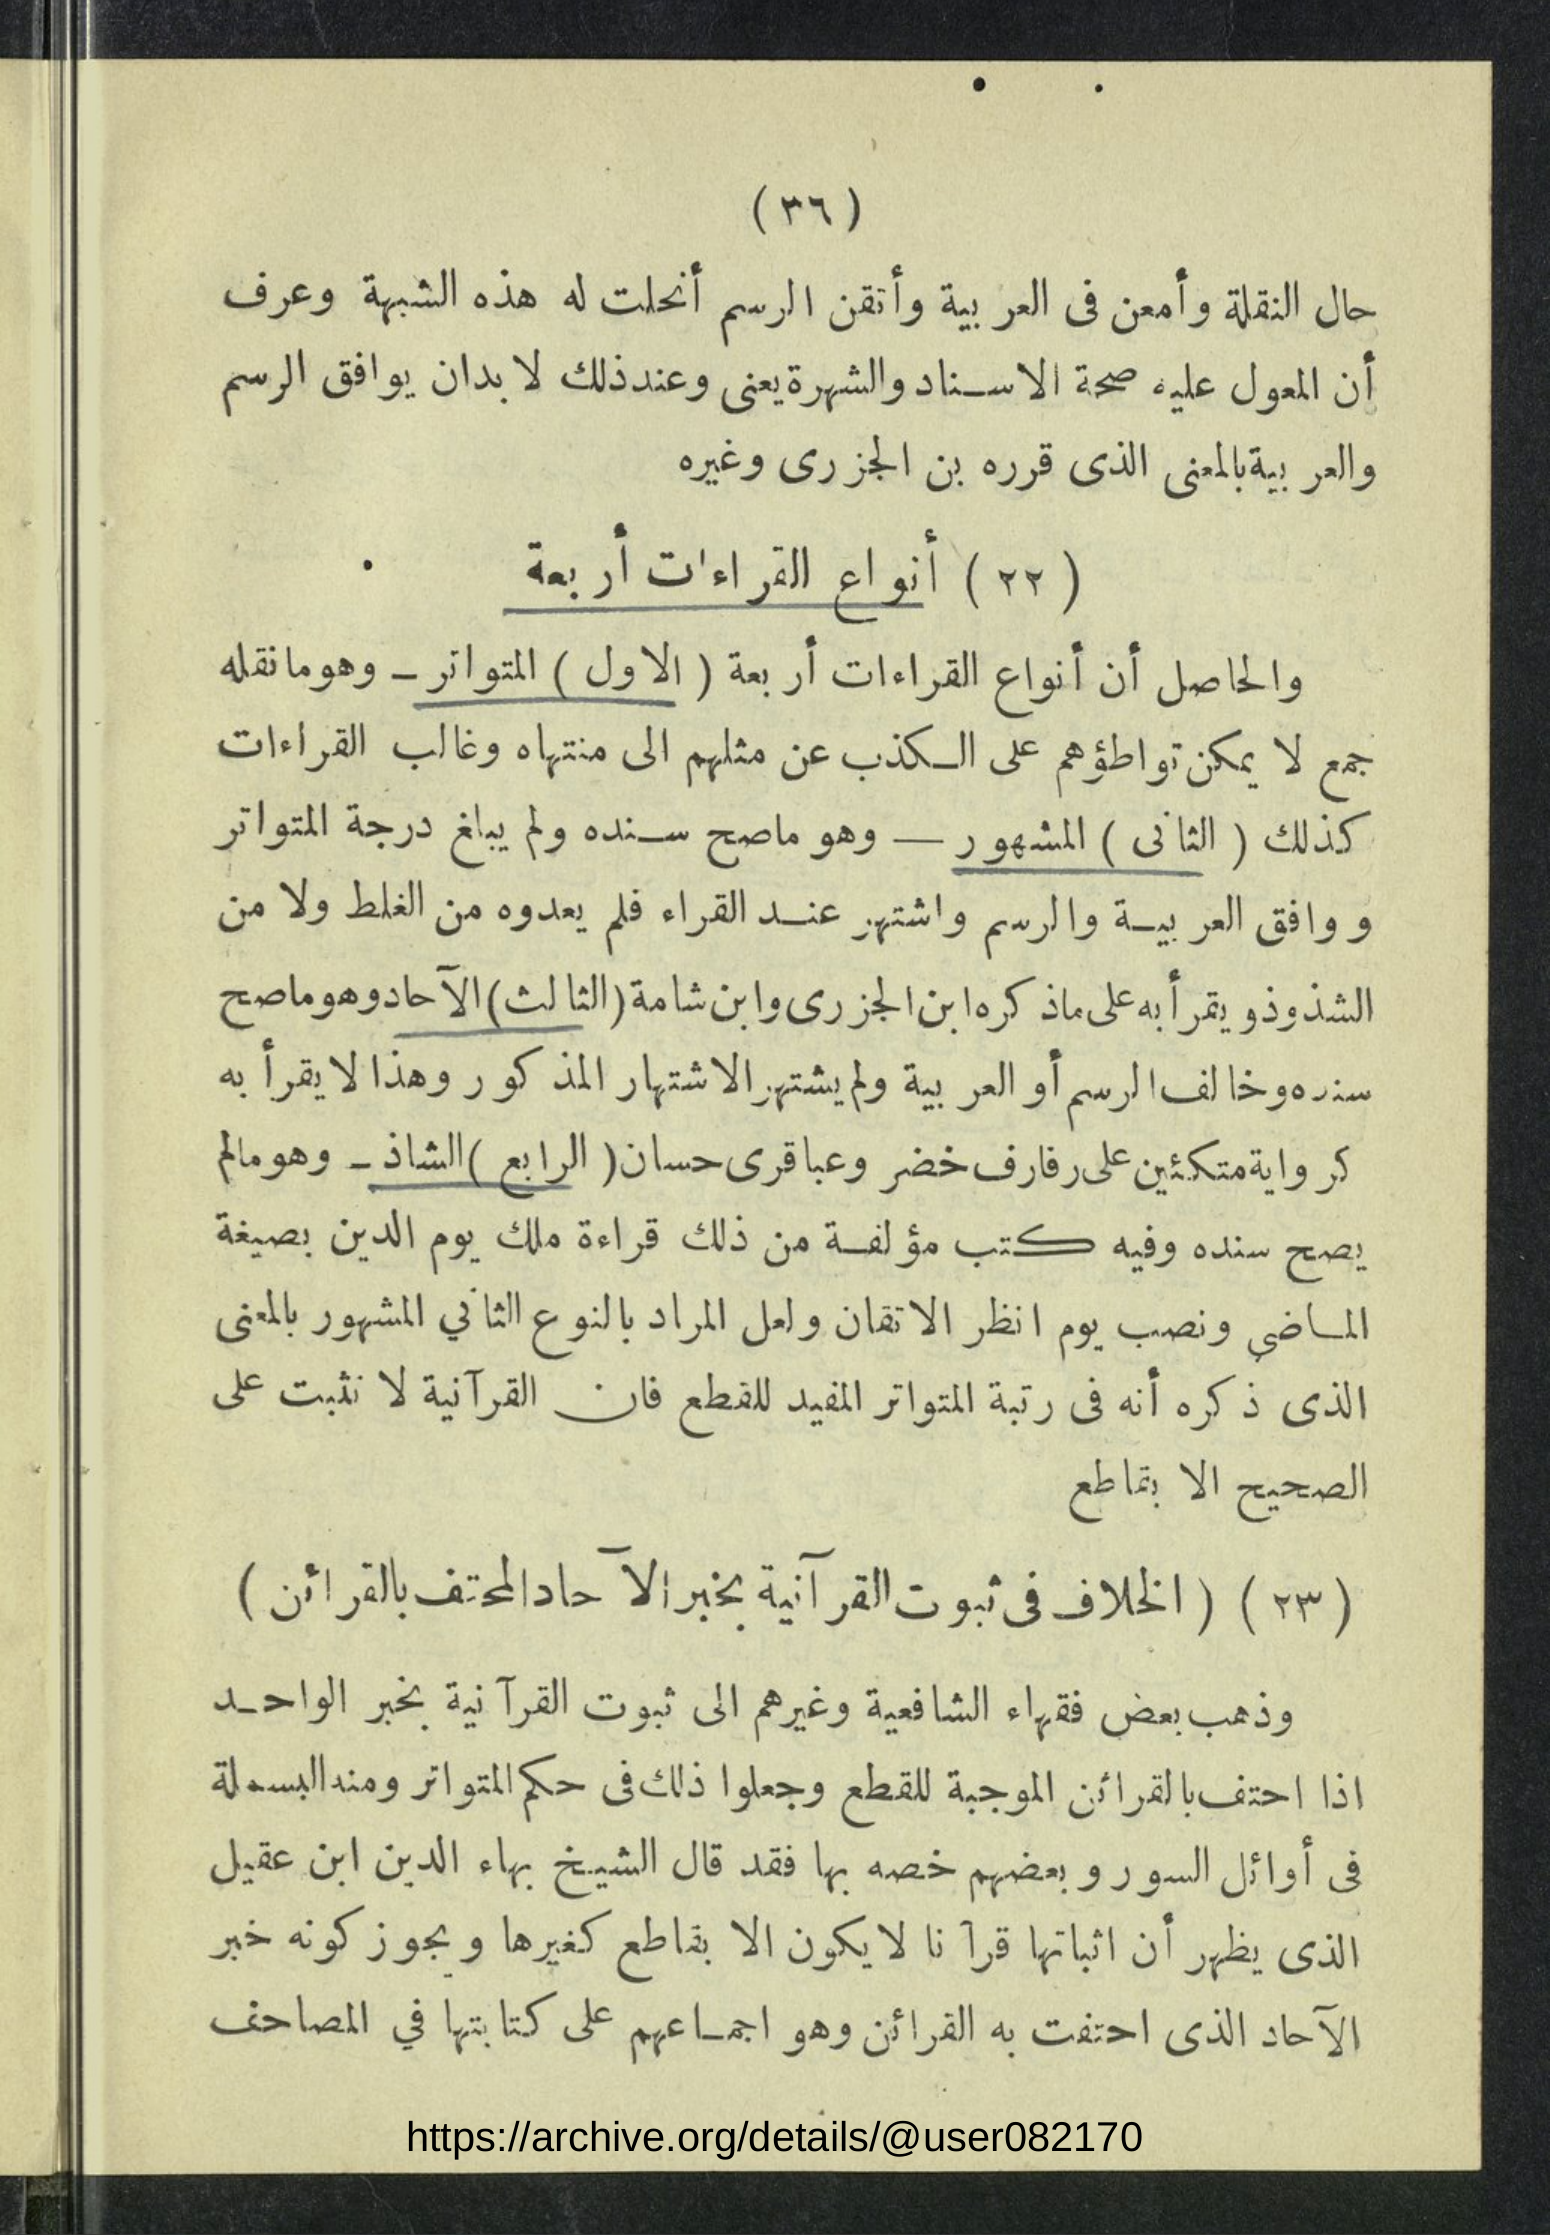 ( ٣٦ )
حال النقلة وأمعن فى العربية وأتقن الرسم أنحلت له هذه الشبهة وعرف
أن المعول عليه صحة الاسناد والشهرة يعنى وعند ذلك لا بد ان يوافق الرسم
والعربية بالمعنى الذى قرره بن الجزرى وغيره
( ٢٢ ) أنواع القراءات أربعة
والحاصل أن أنواع القراءات أربعة ( الاول ) المتواتر ــ وهو مانقله
جمع لا يمكن تواطؤهم على الكذب عن مثلهم الى منتهاه وغالب القراءات
كذلك ( الثانى ) المشهور ــ وهو ماصح سنده ولم يبلغ درجة المتواتر
ووافق العربية والرسم واشتهر عند القراء فلم يعدوه من الغلط ولا من
الشذوذ ويقرأ به على ماذكره ابن الجزرى وابن شامة (الثالث) الآحاد وهو ماصح
سنده وخالف الرسم أو العربية ولم يشتهر الاشتهار المذكور وهذا لا يقرأ به
كرواية متكئين على رفارف خضر وعباقرى حسان ( الرابع ) الشاذ ــ وهو مالم
يصح سنده وفيه كتب مؤلفة من ذلك قراءة ملك يوم الدين بصيغة
الماضى ونصب يوم انظر الاتقان ولعل المراد بالنوع الثاني المشهور بالمعنى
الذى ذكره أنه فى رتبة المتواتر المفيد للقطع فان القرآنية لا نثبت على
الصحيح الا بقاطع
( ٢٣ ) ( الخلاف فى ثبوت القرآنية بخبر الآحاد المحتف بالقرائن )
وذهب بعض فقهاء الشافعية وغيرهم الى ثبوت القرآنية بخبر الواحد
اذا احتف بالقرائن الموجبة للقطع وجعلوا ذلك فى حكم المتواتر ومنه البسملة
فى أوائل السور وبعضهم خصه بها فقد قال الشيخ بهاء الدين ابن عقيل
الذى يظهر أن اثباتها قرآنا لا يكون الا بقاطع كغيرها ويجوز كونه خبر
الآحاد الذى احتفت به القرائن وهو اجماعهم على كتابتها في المصاحف
https://archive.org/details/@user082170